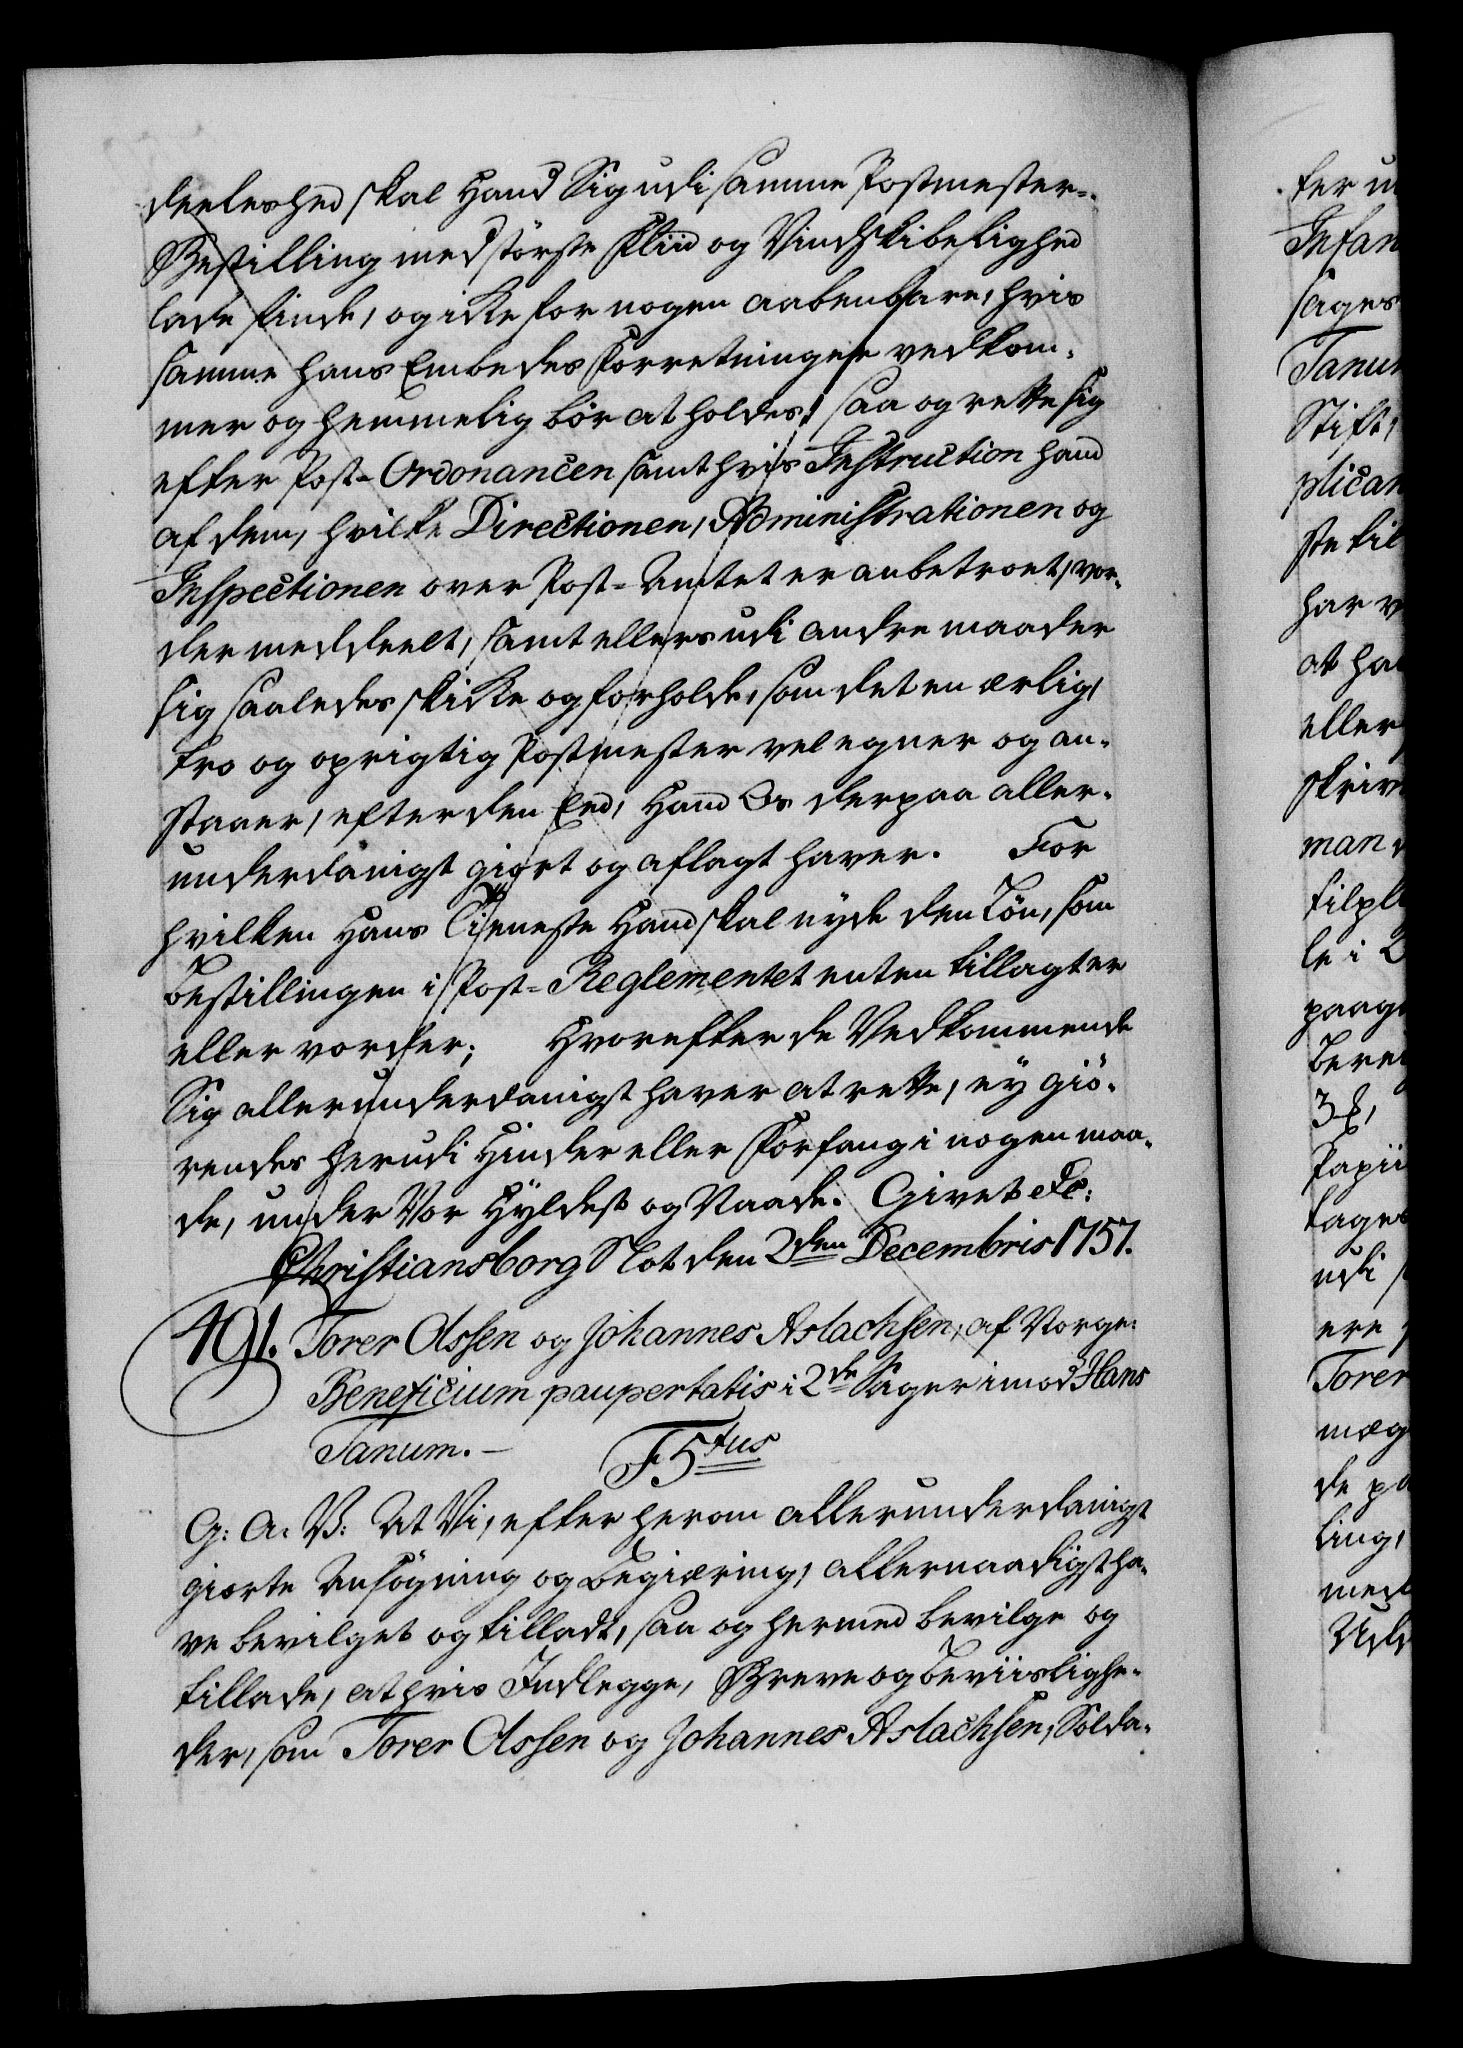 deeleshed skal Hand Sig udi samme Postmester-
Bestilling med störste Fliid og Vindskibelighed
lade finde, og icke for nogen aabenbare, hvis
samme hans Embedes Forretninger vedkom-
mer og hemmelig bör at holdes; saa og rette sig
efter Post-Ordonancen samt hvis Instruction hand
af dem, hvilke Directionen, Administrationen og
Inspectionen over Post-Amtet er anbetroet, vor-
der meddeelt, samt ellers udi andre maader
sig saaledes skicke og forholde, som det en ærlig,
tro og oprigtig Postmester vel egner og an-
staaer, efter den Eed, Hand Os derpaa aller-
underdanigst giort og aflagt haver. For
hvilken Hans Tieneste Hand skal nyde den Lön, som
Bestillingen i Post-Reglementet enten tillagt er
eller vorder; Hvorefter de Vedkommende
Sig allerunderdanigst haver at rette, ey giö-
rendes herudi Hinder eller Forfang i nogen maa-
de, under Vor Hyldest og Naade. Givet &c:
Christiansborg Slot den 2den Decembris 1757.
491. Torer Olssen og Johannes Aslachsen, af Norge:
Beneficium paupertatis i 2de Sager imod Hans
Tanum. - F 5tus
G: A: V: At Vi, efter herom allerunderdanigst
giorte Ansögning og Begiæring, allernaadigst ha-
ve bevilget og tilladt, saa og hermed bevilge og
tillade, at hvis Indlegge, Breve og Beviislighe-
der, som Torer Olssen og Johannes Aslachsen, Solda-